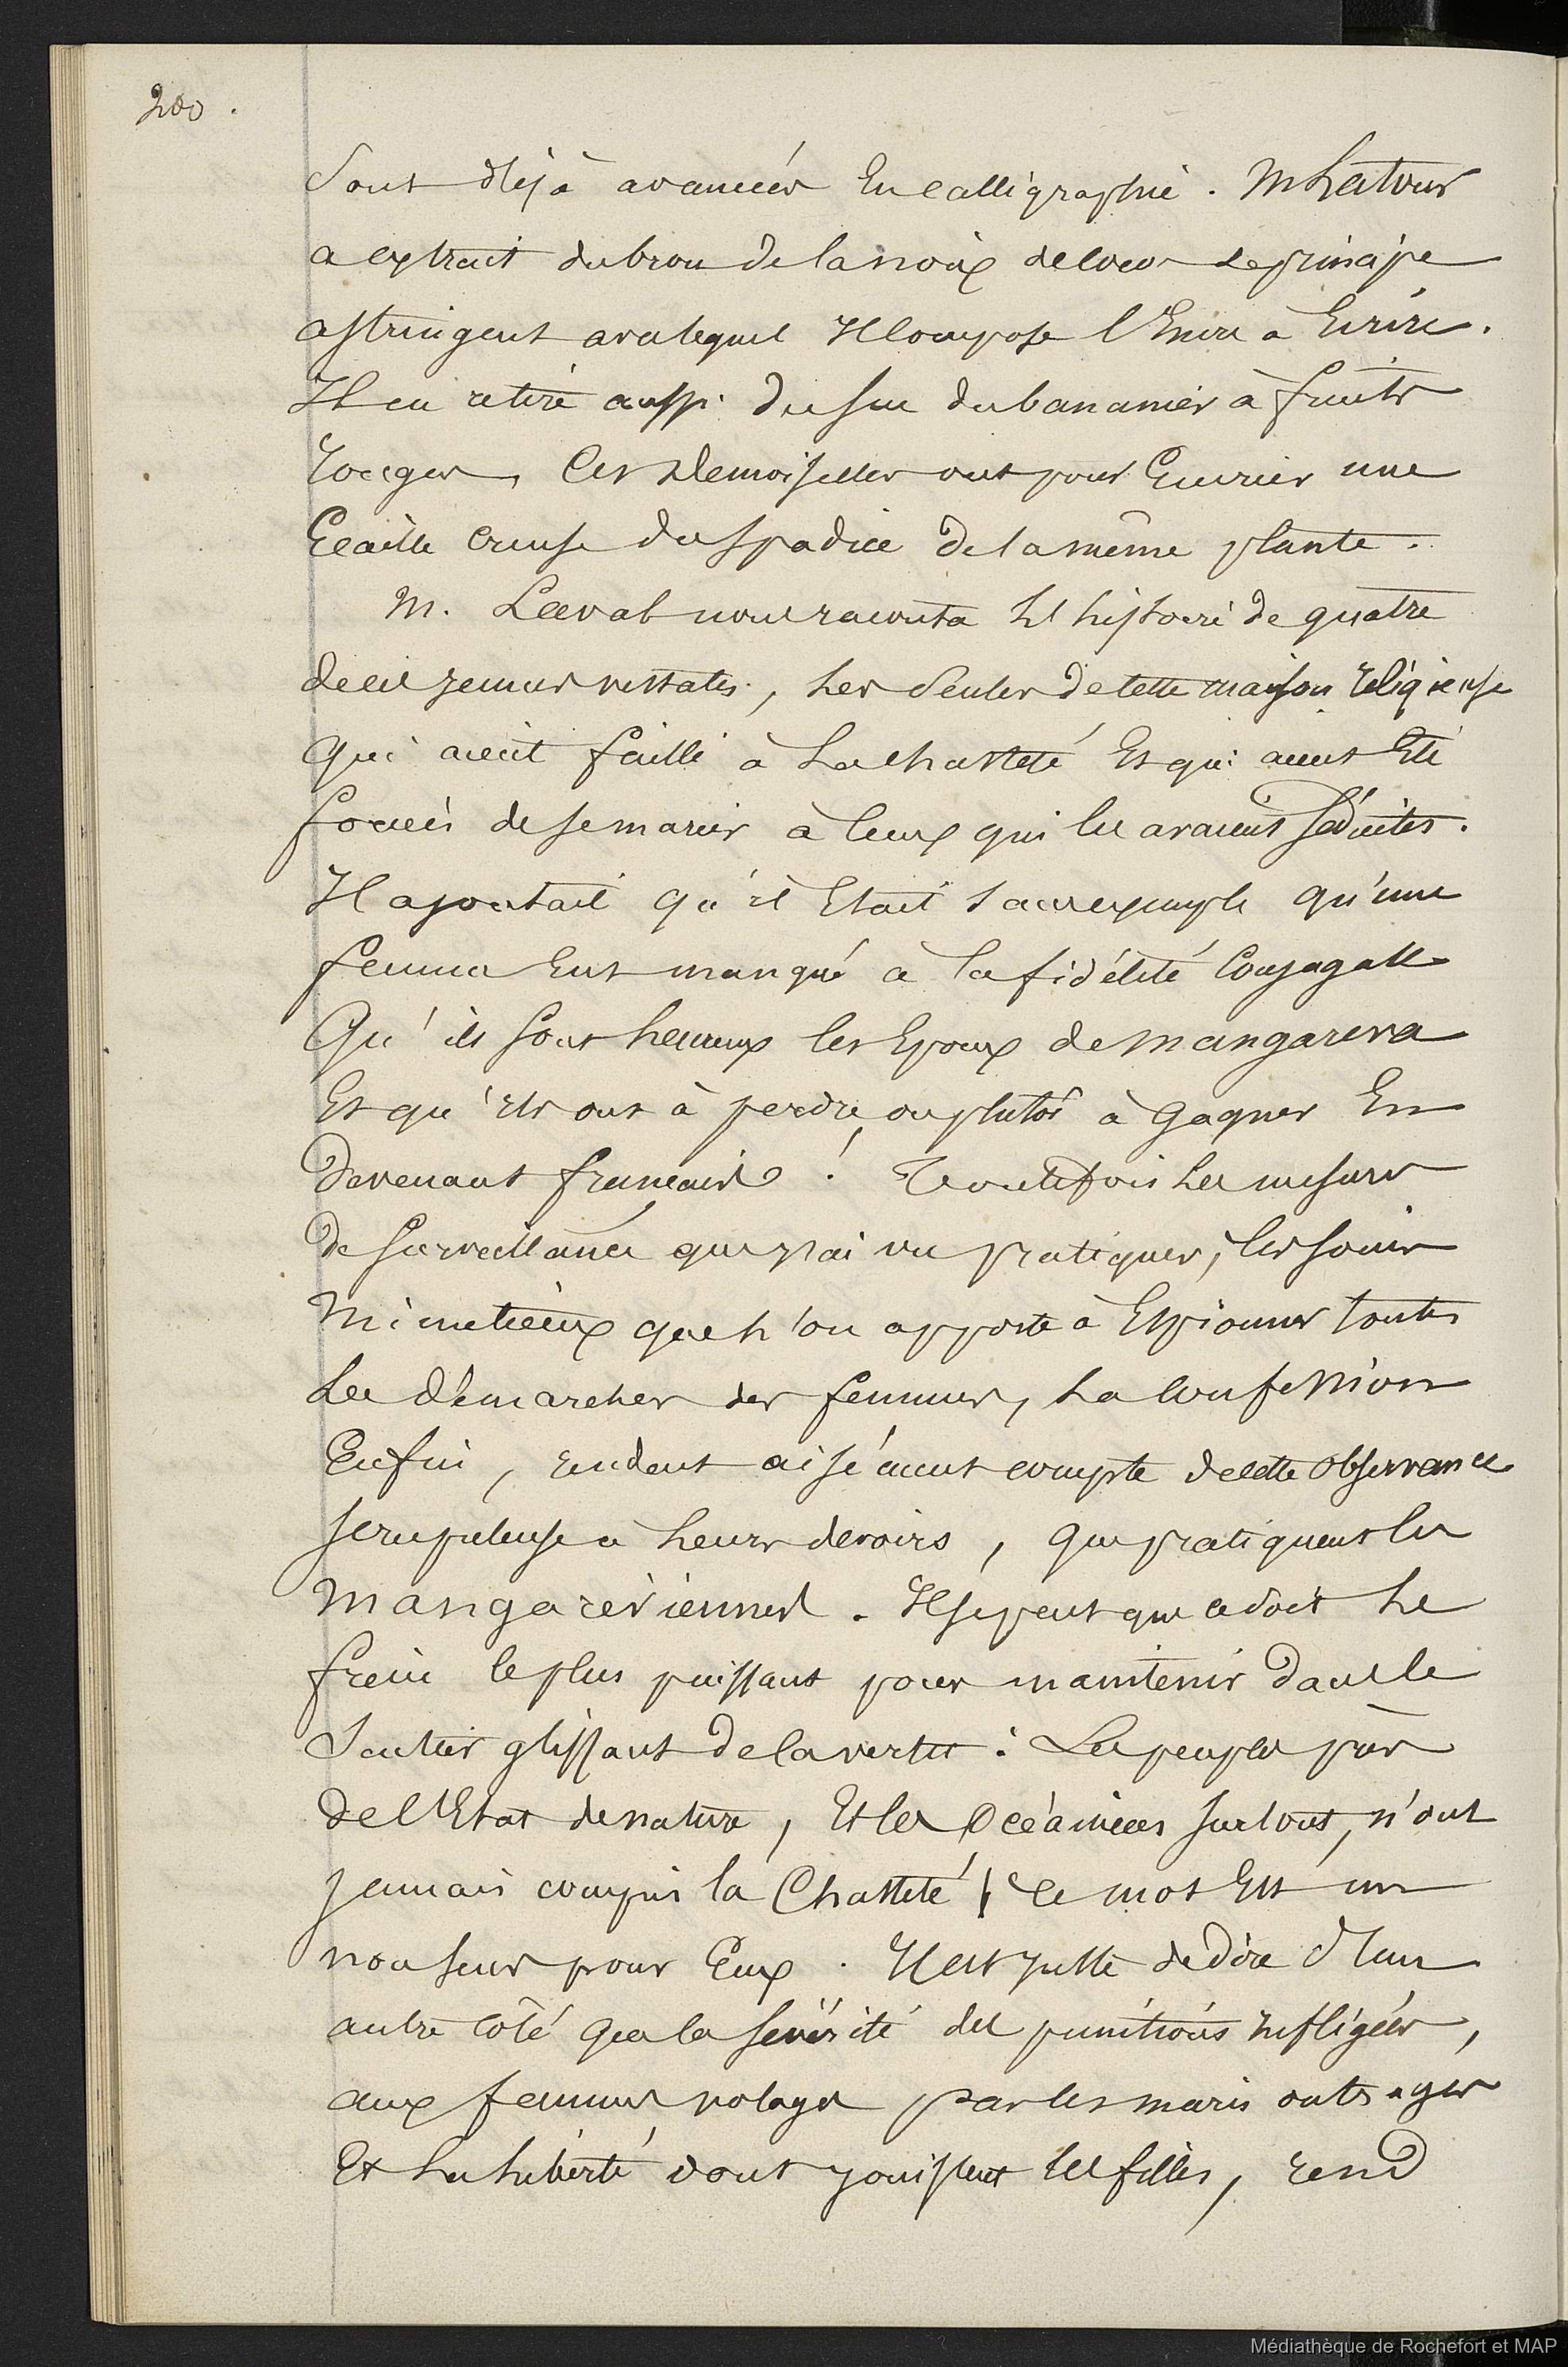 200.
Sont déjà avancées En calligraphie. M Latour
a extrait du brou de la noix de coco le principe
astringent avec lequel Il compose l'Encre à Ecrire.
Il en retire aussi du suc du bananier à fruits
rouges, Ces demoiselles ont pour Encrier une
Ecaille creuse du spadice de la même plante.
M. Laval nous raconta l'histoire de quatre
de ces jeunes vestales, les seules de cette maison religieuse
qui aient failli à la chasteté Et qui aient Eté
forcées de se marier à ceux qui les avaient séduites.
Il ajoutait qu'il Etait sans exemple qu'une
femme Eut manqué à la fidélité Conjugale
Qu'ils sont heureux les Epoux de mangareva
Et qu'ils ont à perdre, ou plutôt à gagner En
devenant français! Toutefois les mesures
de surveillance que j'ai vu pratiquer, les soins
minutieux que l'on apporte à Espionner toutes
les démarches des femmes, la confession
Enfin, rendent aisément compte de cette observance
scrupuleuse à leurs devoirs, que pratiquent les
mangaréviennes. Il se peut que ce soit le
frein le plus puissant pour maintenir dans le
Sentier glissant de la vertu: Les peuples près
de l'Etat de nature, Et les Océaniens surtout, n'ont
jamais compris la Chasteté! Ce mot Est un
non sens pour Eux. Il est juste de dire d'un
autre côté que la sévérité des punitions infligées,
aux femmes volages par les maris outragés
Et la liberté dont jouissent les filles, rend
Médiathèque de Rochefort et MAP